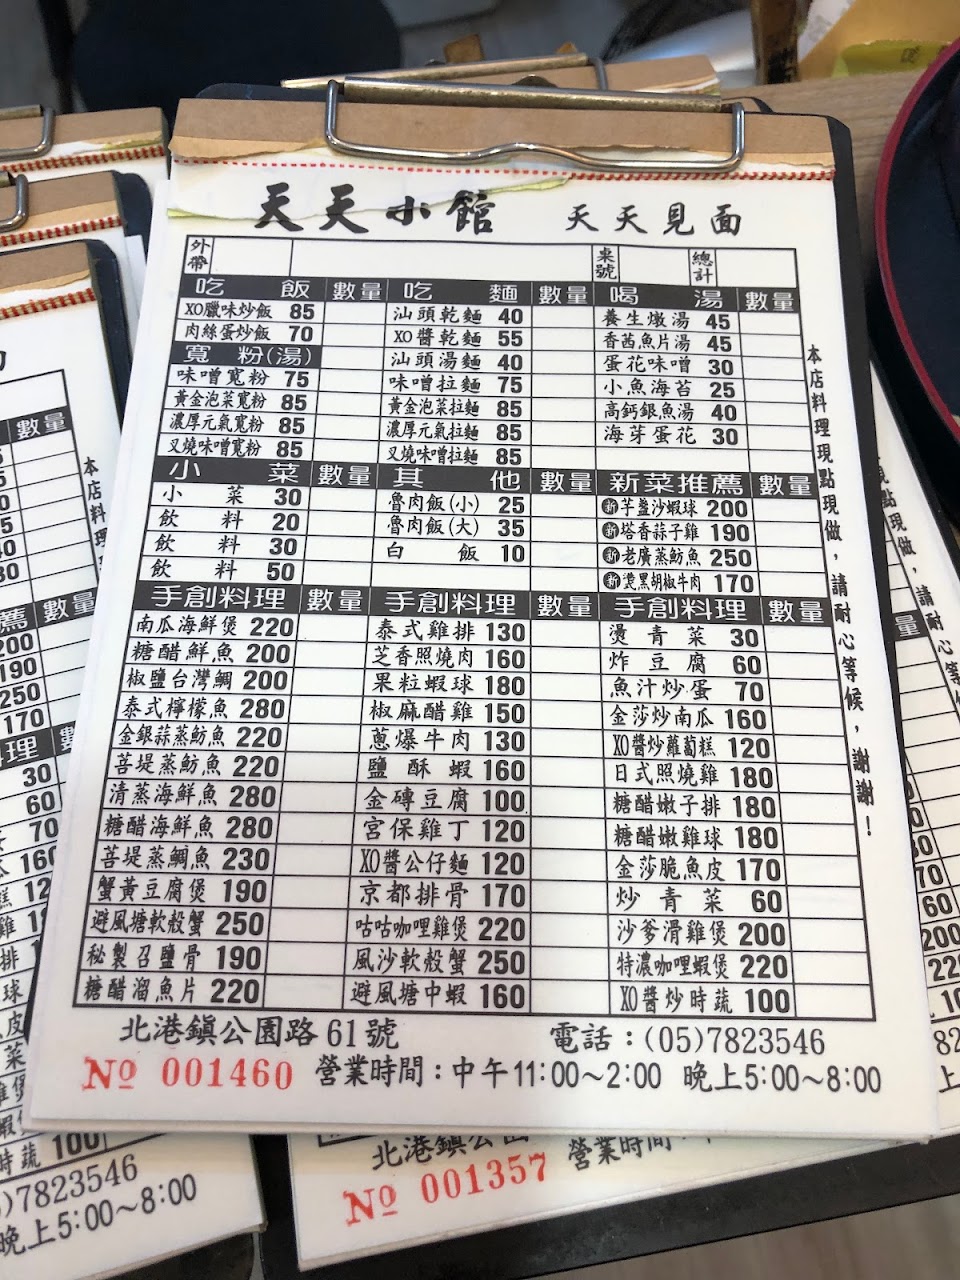 天天小館 天天見面
外帶 桌號 總計
吃飯 數量 吃麵 數量 喝湯 數量
XO臘味炒飯 85 汕頭乾麵 40 養生燉湯 45
肉絲蛋炒飯 70 XO醬乾麵 55 香茜魚片湯 45
寬粉(湯) 汕頭湯麵 40 蛋花味噌 30
味噌寬粉 75 味噌拉麵 75 小魚海苔 25
黃金泡菜寬粉 85 黃金泡菜拉麵 85 高鈣銀魚湯 40
濃厚元氣寬粉 85 濃厚元氣拉麵 85 海芽蛋花 30
叉燒味噌寬粉 85 叉燒味噌拉麵 85
小菜 數量 其他 數量 新菜推薦 數量
小菜 30 魯肉飯(小) 25 新芋盞沙蝦球 200
飲料 20 魯肉飯(大) 35 新塔香蒜子雞 190
飲料 30 白飯 10 新老廣蒸魴魚 250
飲料 50 新燙黑胡椒牛肉 170
手創料理 數量 手創料理 數量 手創料理 數量
南瓜海鮮煲 220 泰式雞排 130 燙青菜 30
糖醋鮮魚 200 芝香照燒肉 160 炸豆腐 60
椒鹽台灣鯛 200 果粒蝦球 180 魚汁炒蛋 70
泰式檸檬魚 280 椒麻醋雞 150 金莎炒南瓜 160
金銀蒜蒸魴魚 220 蔥爆牛肉 130 XO醬炒蘿蔔糕 120
菩堤蒸魴魚 220 鹽酥蝦 160 日式照燒雞 180
清蒸海鮮魚 280 金磚豆腐 100 糖醋嫩子排 180
糖醋海鮮魚 280 宮保雞丁 120 糖醋嫩雞球 180
菩堤蒸鯛魚 230 XO醬公仔麵 120 金莎脆魚皮 170
蟹黃豆腐煲 190 京都排骨 170 炒青菜 60
避風塘軟殼蟹 250 咕咕咖哩雞煲 220 沙爹滑雞煲 200
秘製召鹽骨 190 風沙軟殼蟹 250 特濃咖哩蝦煲 220
糖醋溜魚片 220 避風塘中蝦 160 XO醬炒時蔬 100
本店料理現點現做，請耐心等候，謝謝！
北港鎮公園路61號 電話：(05)7823546
No 001460 營業時間：中午11:00～2:00 晚上5:00～8:00
北港鎮公園
No 001357 營業時間：